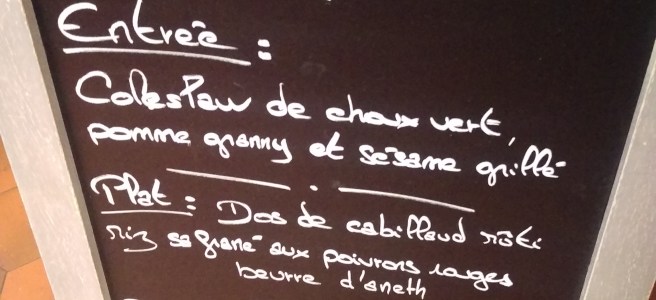 Entrée :
Coleslaw de choux vert,
pomme granny et sésame grillé
Plat : Dos de cabillaud rôti
riz safrané aux poivrons rouges
beurre d'aneth